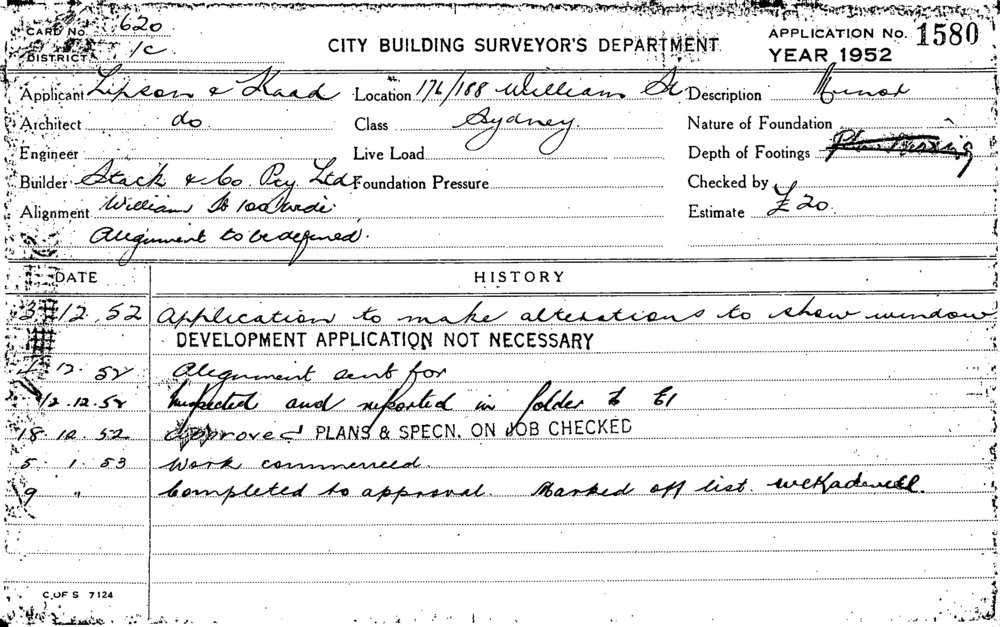 CARD No. 620
DISTRICT 1C
CITY BUILDING SURVEYOR'S DEPARTMENT
APPLICATION No. 1580
YEAR 1952
Applicant Lipson & Kaad Location 176/188 William St Description Minor
Architect do Class Sydney. Nature of Foundation
Engineer Live Load Depth of Footings
Builder Stack & Co. Pty Ltd Foundation Pressure Checked by
Alignment William St 100 wide Estimate £20
Alignment to be defined.
DATE HISTORY
3 12. 52 Application to make alterations to show window
DEVELOPMENT APPLICATION NOT NECESSARY
12. 52 Alignment sent for
12.12.52 Inspected and reported in folder to E1
18. 12. 52 approved PLANS & SPECN. ON JOB CHECKED
5. 1. 53 Work commenced.
9 " Completed to approval. Marked off list.
C. OF S 7124